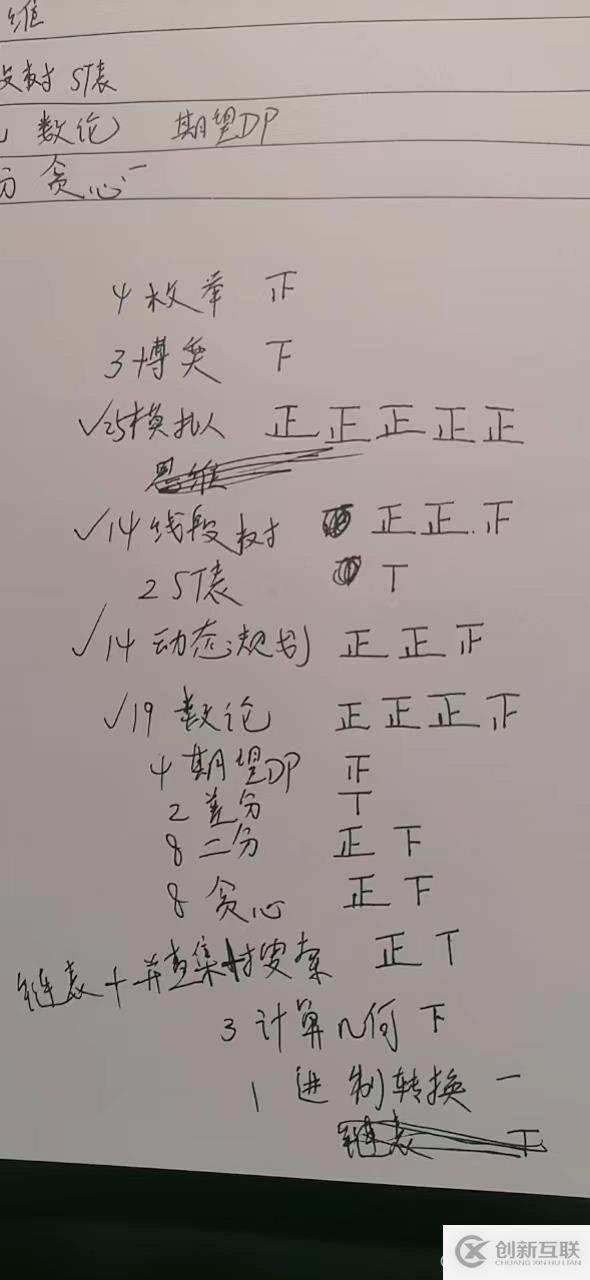 维
段树 ST表
数论 期望DP
分 贪心 一
4 枚举 正
3 博弈 下
✓25模拟 正 正 正 正 正
思维
✓14 线段树 正 正 正
2 ST表 T
✓14 动态规划 正 正 正
✓19 数论 正 正 正 正
4 期望DP 正
2 差分 T
8 二分 正 下
8 贪心 正 下
链表+并查集+搜索 正 T
3 计算几何 下
1 进制转换 一
链表 下
创新互联
CHUANG XIN HU LIAN